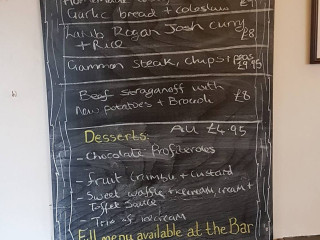 Garlic bread + coleslaw £9
Lamb Rogan Josh curry
+ Rice £8
Gammon steak, chips, peas
£9.95
Beef Stroganoff with
new potatoes + Brocoli £8
Desserts: ALL £4.95
- Chocolate Profiteroles
- fruit Crumble + Custard
- Sweet waffle + icecream, cream +
Toffee Sauce
- Trio of icecream
Full menu available at the Bar